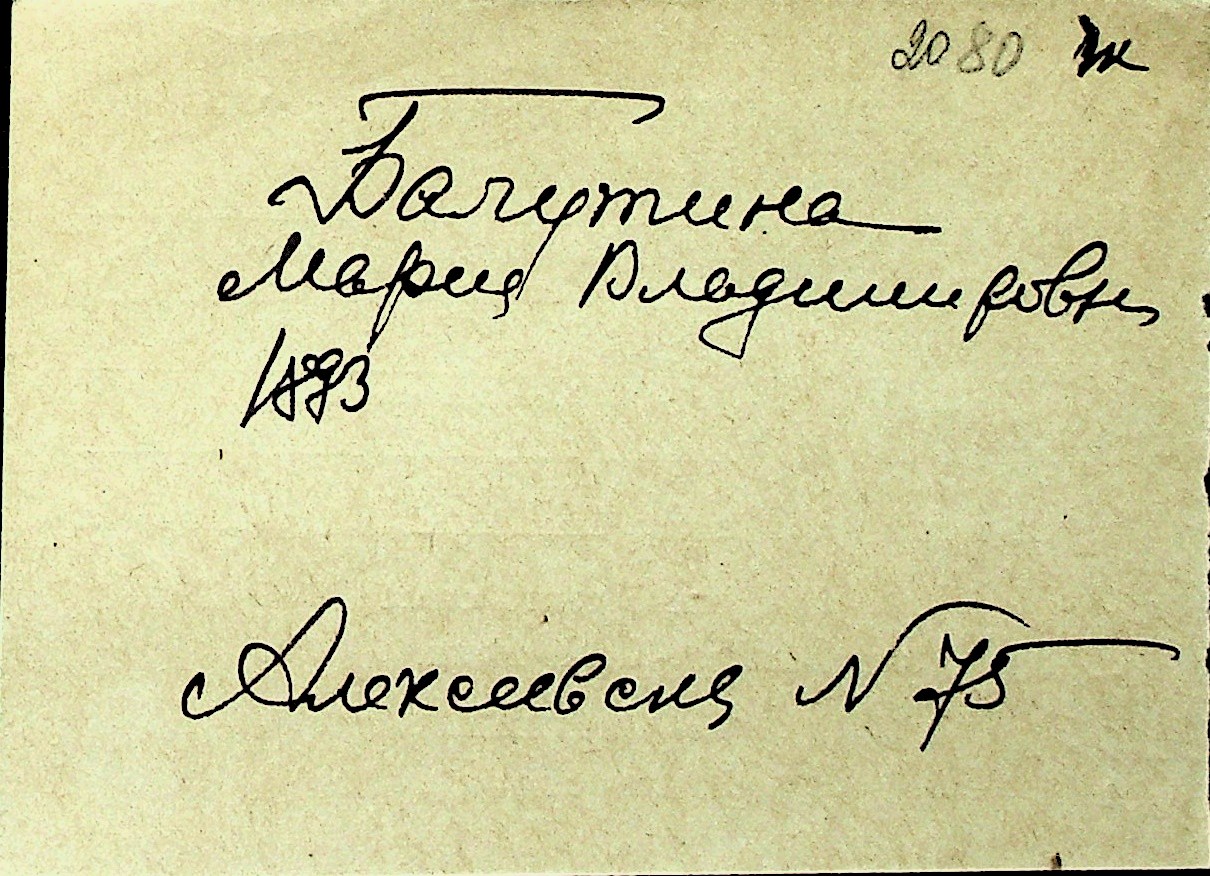 2080 ж
Бачутина
Мария Владимировна
1893
Алексеевская N 75